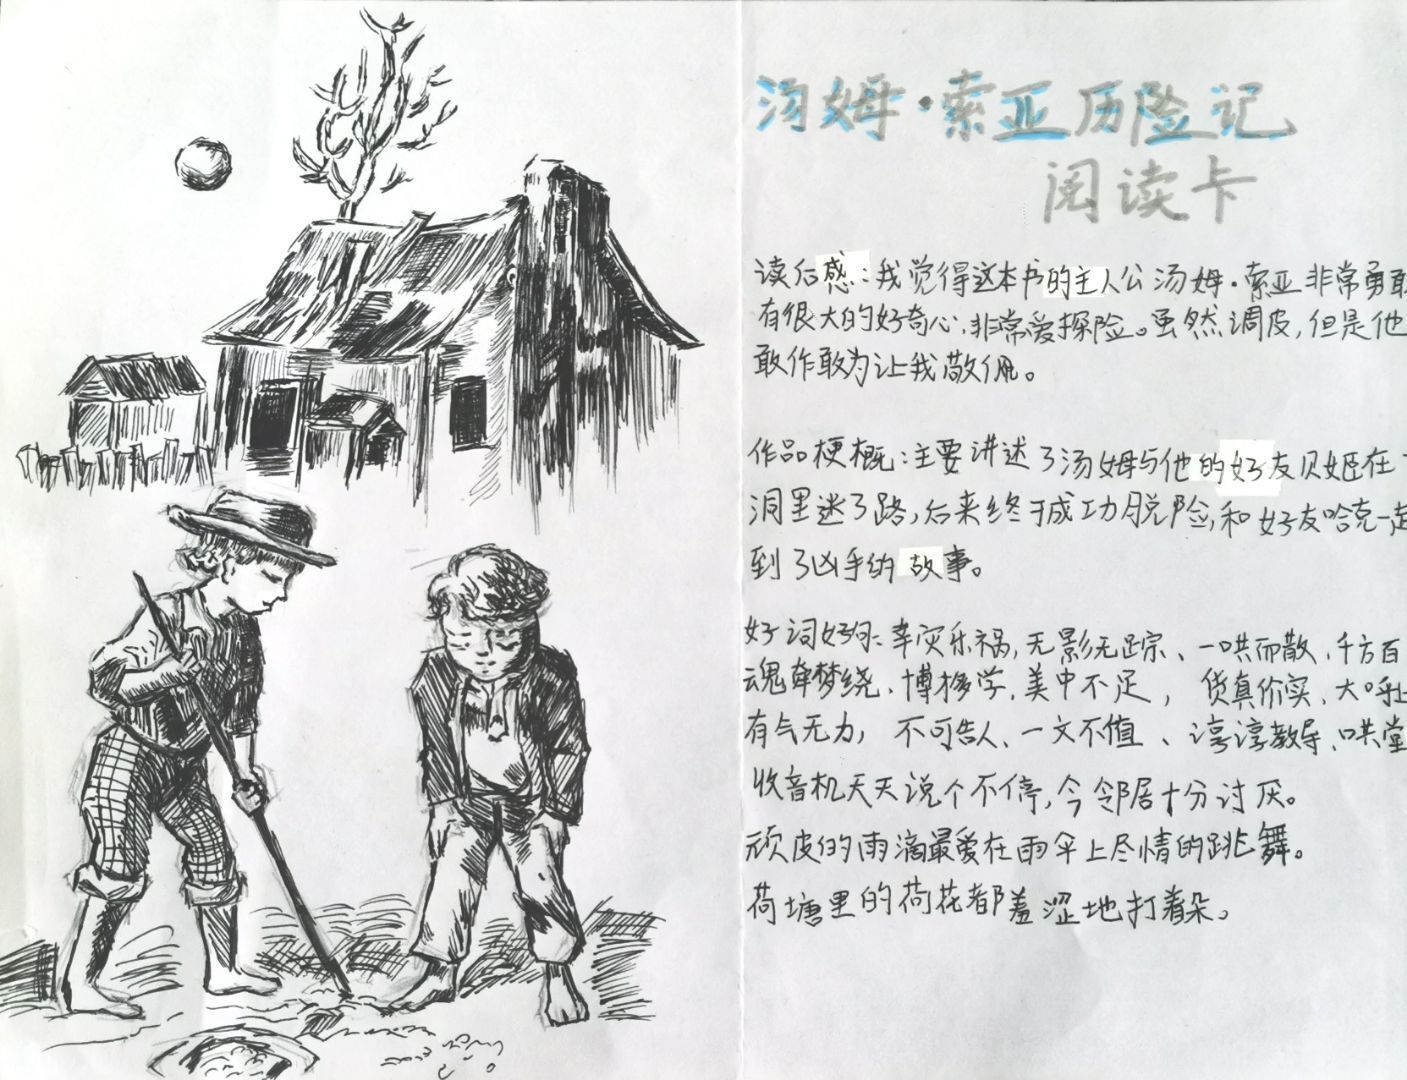 汤姆·索亚历险记
阅读卡
读后感:我觉得这本书的主人公汤姆·索亚非常勇敢
有很大的好奇心,非常爱探险。虽然调皮,但是他
敢作敢为让我敬佩。
作品梗概:主要讲述了汤姆与他的好友贝姬在
洞里迷了路,后来终于成功脱险,和好友哈克一起
到了凶手的故事。
好词好句:幸灾乐祸,无影无踪、一哄而散、千方百
魂牵梦绕、博多学,美中不足,货真价实、大
有气无力,不可告人、一文不值、谆谆教导、哄堂
收音机天天说个不停,令邻居十分讨厌。
顽皮的雨滴最爱在雨伞上尽情的跳舞。
荷塘里的荷花都羞涩地打着朵。